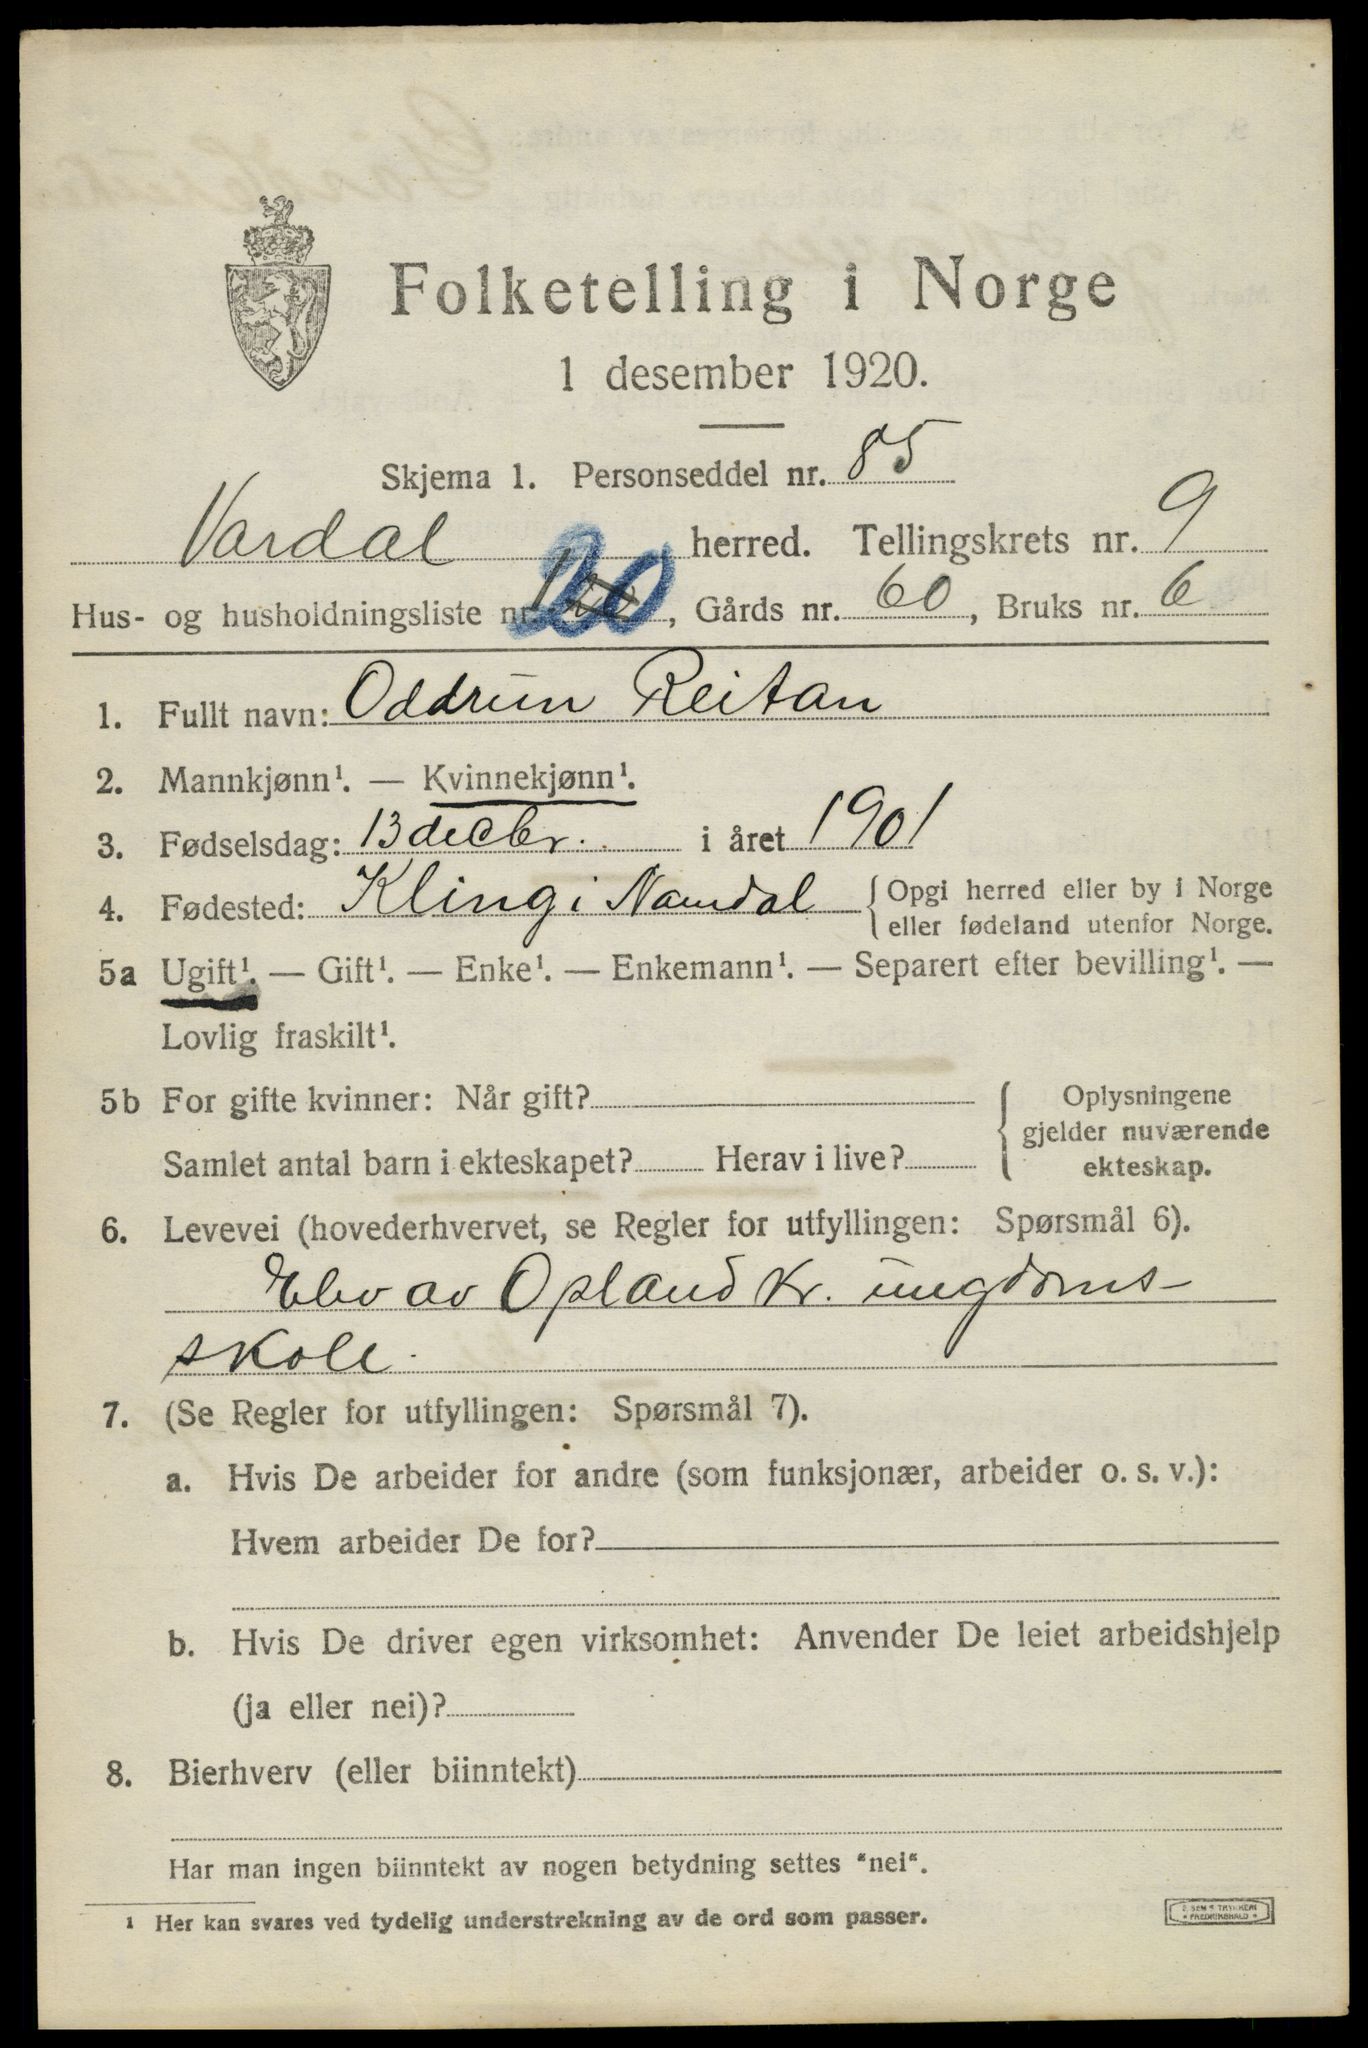 Folketelling i Norge
1 desember 1920.
Skjema 1. Personseddel nr. 85
Vardal herred. Tellingskrets nr. 9
Hus- og husholdningsliste nr. 20, Gårds nr. 60, Bruks nr. 6
1. Fullt navn: Oddrun Reitan
2. Mannkjønn¹. — Kvinnekjønn¹.
3. Fødselsdag: 13 decbr. i året 1901
4. Fødested: Kling i Namdal {Opgi herred eller by i Norge
eller fødeland utenfor Norge.
5a Ugift¹. — Gift¹. — Enke¹. — Enkemann¹. — Separert efter bevilling¹. —
Lovlig fraskilt¹.
5b For gifte kvinner: Når gift?
Samlet antal barn i ekteskapet? Herav i live?
Oplysningene
gjelder nuværende
ekteskap.
6. Levevei (hovederhvervet, se Regler for utfyllingen: Spørsmål 6).
Elev av Opland Kr. ungdoms-
skole.
7. (Se Regler for utfyllingen: Spørsmål 7).
a. Hvis De arbeider for andre (som funksjonær, arbeider o. s. v.):
Hvem arbeider De for?
b. Hvis De driver egen virksomhet: Anvender De leiet arbeidshjelp
(ja eller nei)?
8. Bierhverv (eller biinntekt)
Har man ingen biinntekt av nogen betydning settes "nei".
¹ Her kan svares ved tydelig understrekning av de ord som passer.